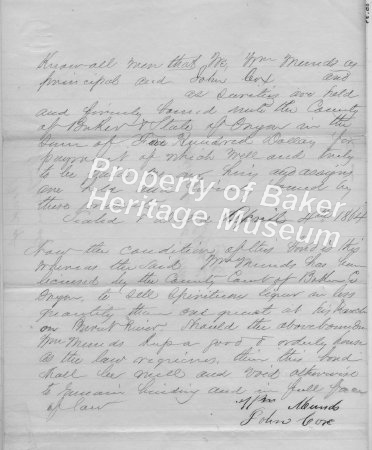 Know all men that We, Wm Munds as
principal and John Cox and
as sureties are held
and firmly bound unto the County
of Baker & State of Oregon in the
Sum of Five Hundred Dollars for
payment of which well and truly
to be our heirs and assigns
these
Property of Baker
Heritage Museum
Sealed April 4th 1864
Now the condition of this bond is this
whereas the said Wm Munds has been
licensed by the County Court of Baker Co
Oregon, to sell Spirituous liquor in less
quantity than one quart at his Ranch
on Burnt River. Should the abovebounden
Wm Munds keep a good & orderly house
as the law requires, then this bond
shall be null and void otherwise
to remain binding and in full force
of law
Wm Munds
John Cox